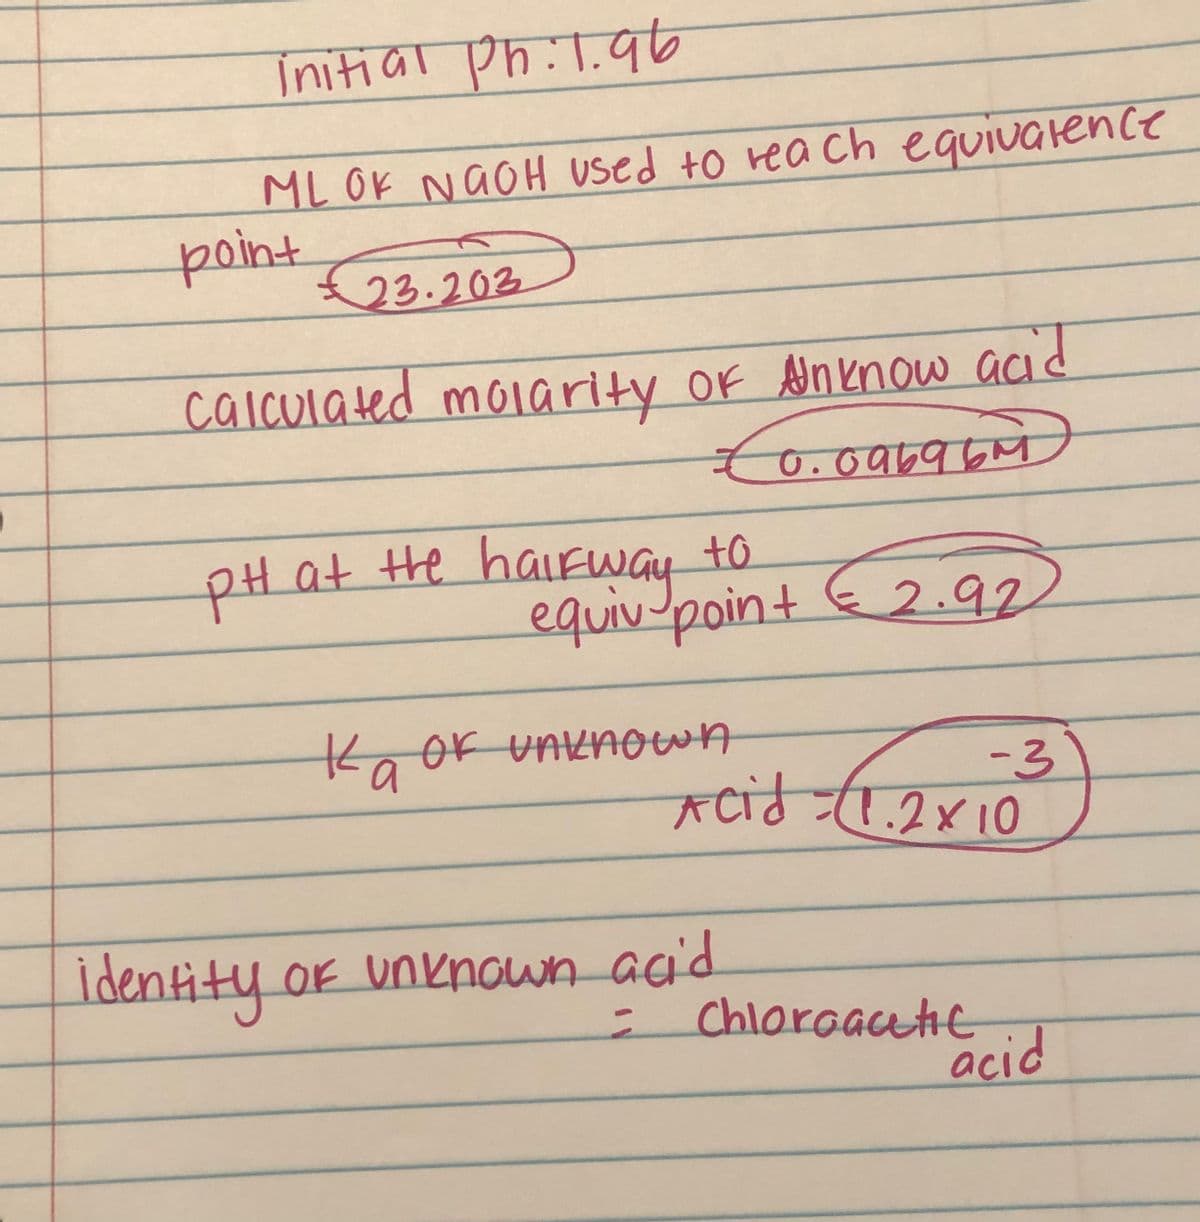 initial Ph:1.96
ML OF NaOH used to reach equivalence
point
= 23.203
calculated molarity OF Unknow acid
= 0.09696M
pH at the halfway to
equiv-point = 2.92
Ka OF unknown
Acid = 1.2x10-3
identity OF unknown acid
= Chloroacetic
acid